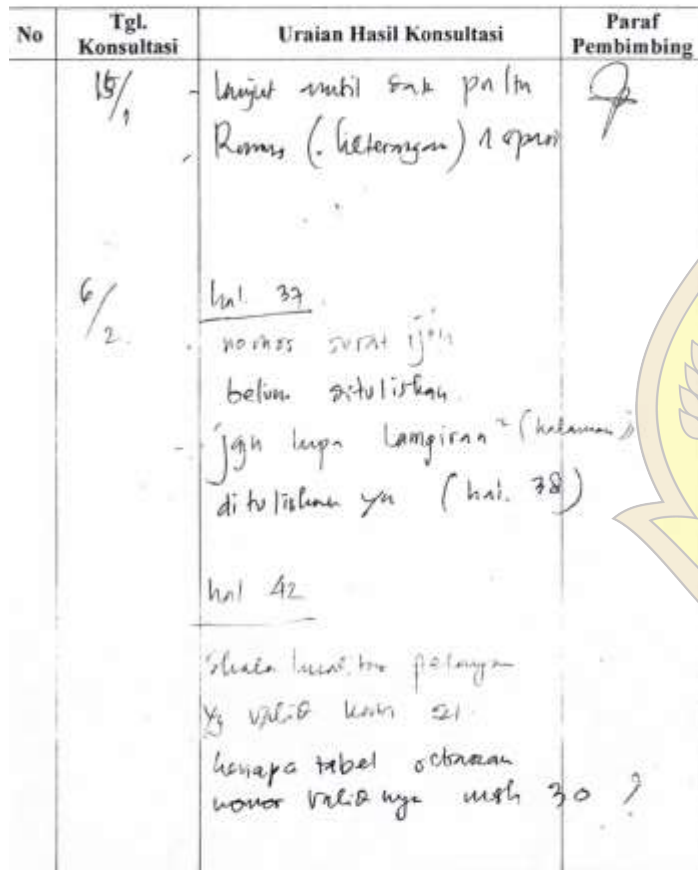 No
Tgl. Konsultasi
Uraian Hasil Konsultasi
Paraf Pembimbing
15/1
- Lanjut ambil
(. keterangan) 1
6/2
hal. 37
nomor surat ijin
belum dituliskan
- jgn lupa Lampiran² (halaman)
dituliskan ya (hal. 38)
hal 42
skala
yg valid kan 21
kenapa tabel sebaran
nomor validnya msh 30 ?